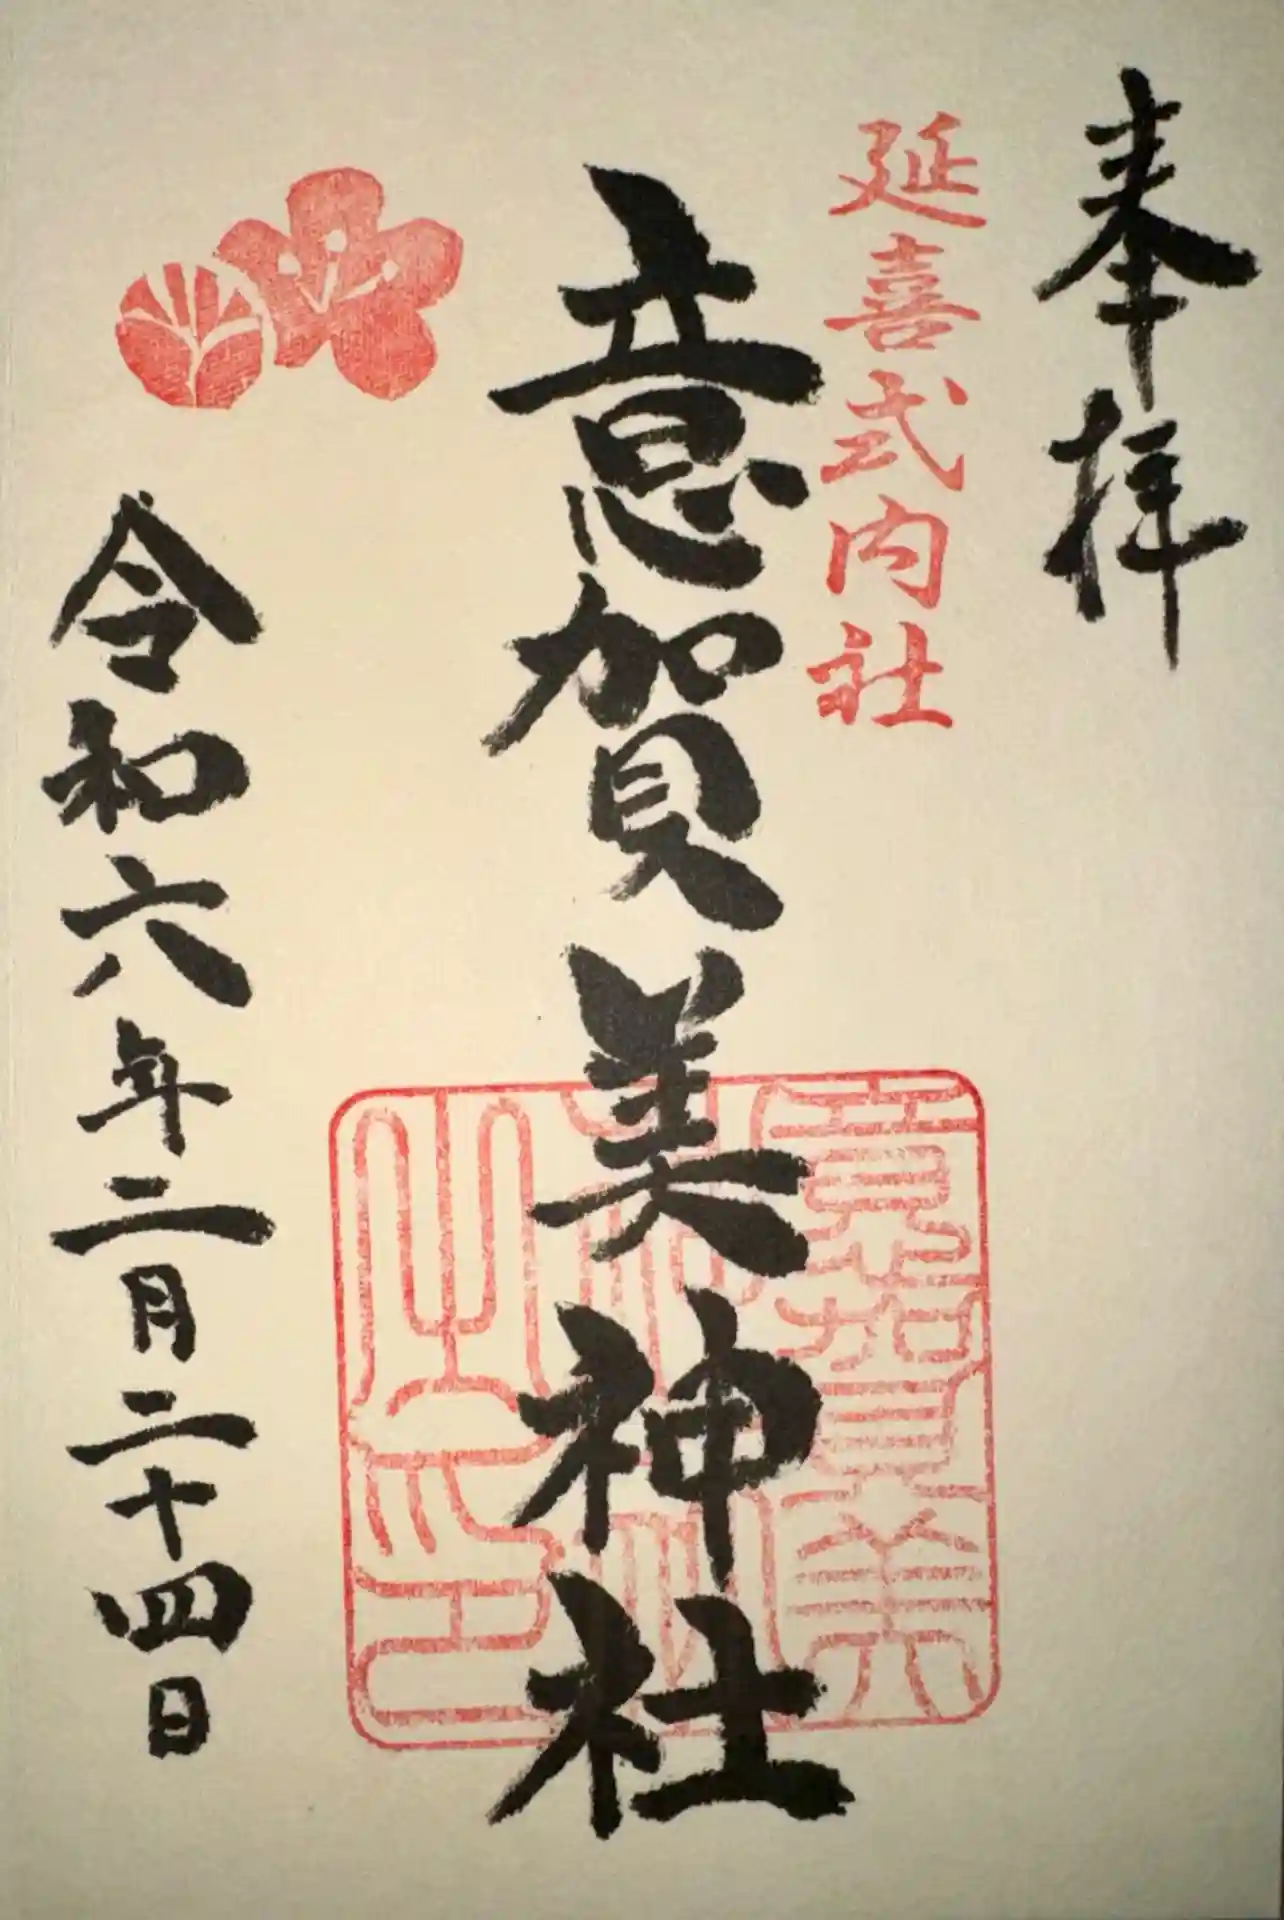 奉拝
延喜式内社
意賀美神社
意賀美神社之印
令和六年二月二十四日